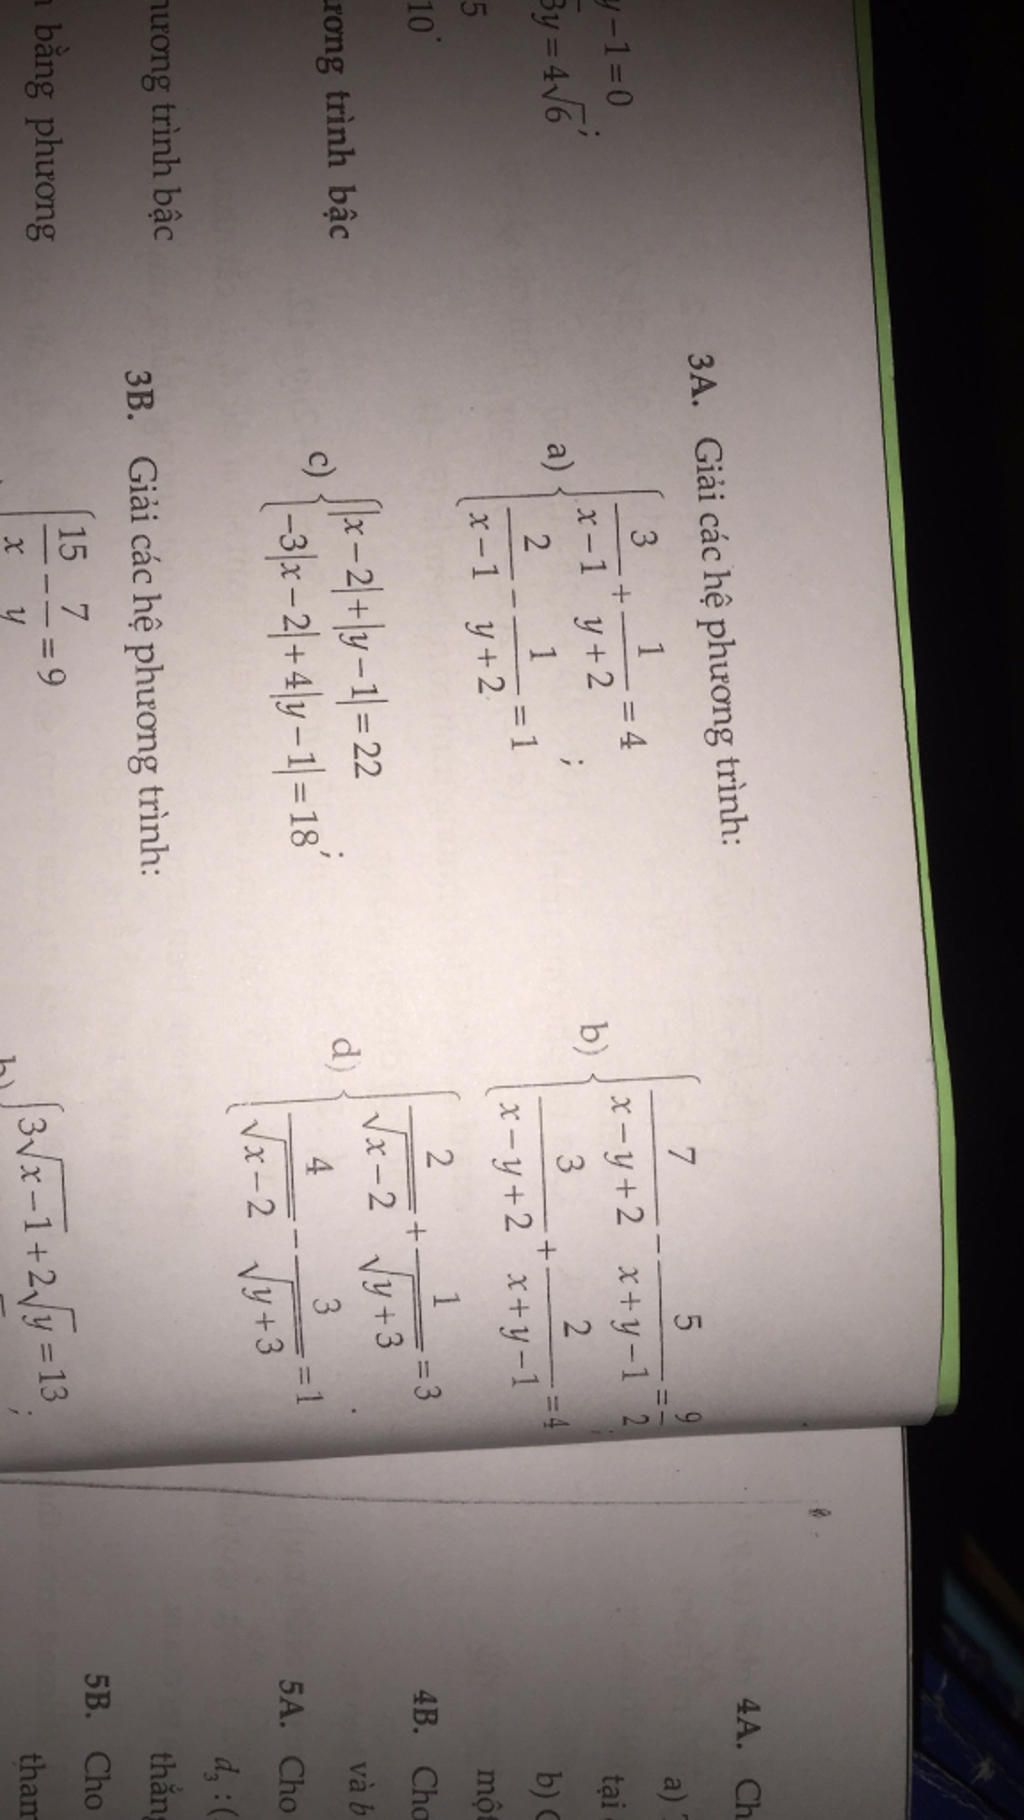 y−1=0
3y=4√6;
5
10.
ương trình bậc
hương trình bậc
bằng phương
3A. Giải các hệ phương trình:
a) { 3/(x−1) + 1/(y+2) = 4
2/(x−1) − 1/(y+2) = 1 ;
b) { 7/(x−y+2) − 5/(x+y−1) = 9/2
3/(x−y+2) + 2/(x+y−1) = 4 ;
c) { |x−2|+|y−1|=22
−3|x−2|+4|y−1|=18 ;
d) { 2/√(x−2) + 1/√(y+3) = 3
4/√(x−2) − 3/√(y+3) = 1 .
3B. Giải các hệ phương trình:
15/x − 7/y = 9
b) { 3√(x−1)+2√y=13 ;
4A. Ch
a)
tại
b)
4B. Cho
một
và b
5A. Cho
d₃:(
thẳng
5B. Cho
tham